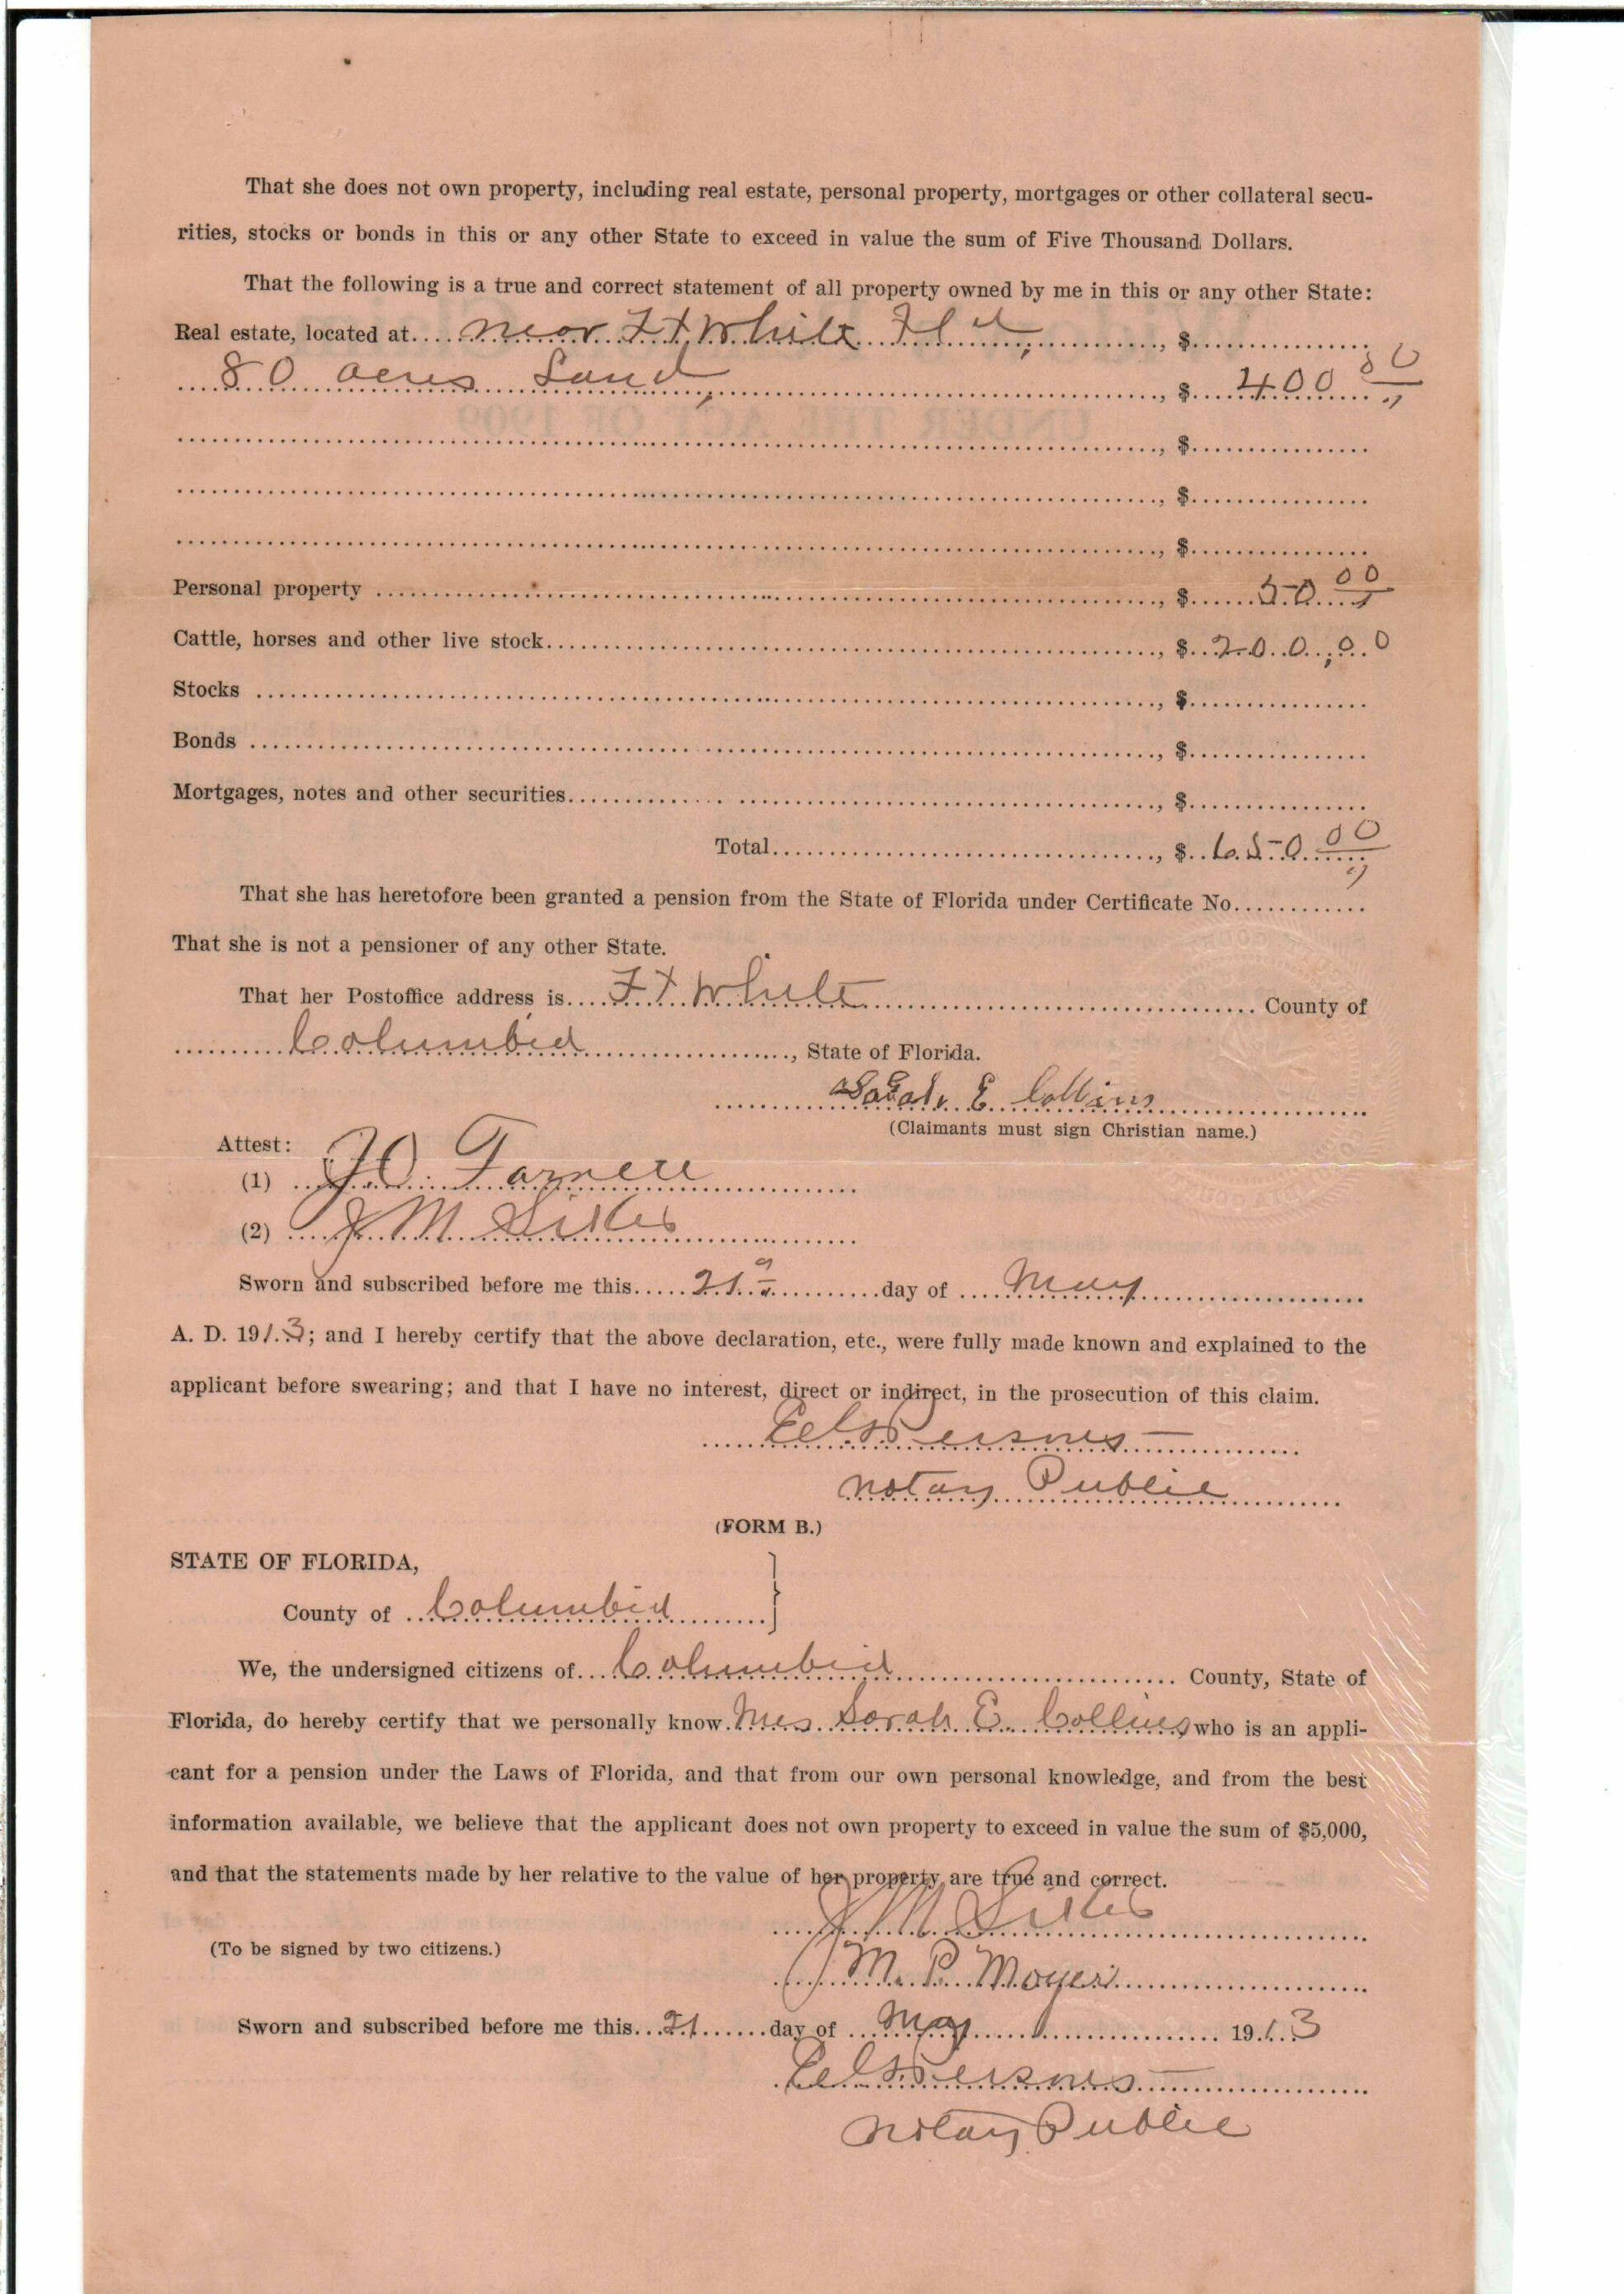 That she does not own property, including real estate, personal property, mortgages or other collateral secu-
rities, stocks or bonds in this or any other State to exceed in value the sum of Five Thousand Dollars.
That the following is a true and correct statement of all property owned by me in this or any other State:
Real estate, located at.... near Ft White Fla, ............, $................
80 acres Land, ............, $ 400 00
............, $................
............, $................
............, $................
Personal property ............, $ 50 00
Cattle, horses and other live stock............, $ 200,00
Stocks ............, $................
Bonds ............, $................
Mortgages, notes and other securities............, $................
Total............, $ 650 00
That she has heretofore been granted a pension from the State of Florida under Certificate No............
That she is not a pensioner of any other State.
That her Postoffice address is.... Ft White ............ County of
Columbia ............, State of Florida.
Sarah E Collins
(Claimants must sign Christian name.)
Attest:
(1)
(2) J M Sikes
Sworn and subscribed before me this..... 21 ..........day of .... May
A. D. 1913; and I hereby certify that the above declaration, etc., were fully made known and explained to the
applicant before swearing; and that I have no interest, direct or indirect, in the prosecution of this claim.
Persons
Notary Public
(FORM B.)
STATE OF FLORIDA,
County of Columbia
We, the undersigned citizens of... Columbia ............ County, State of
Florida, do hereby certify that we personally know Mrs Sarah E. Collins who is an appli-
cant for a pension under the Laws of Florida, and that from our own personal knowledge, and from the best
information available, we believe that the applicant does not own property to exceed in value the sum of $5,000,
and that the statements made by her relative to the value of her property are true and correct.
J M Sikes
(To be signed by two citizens.)
M. P.
Sworn and subscribed before me this...21......day of ... May ............ 1913
Persons
Notary Public
UNDER THE ACT OF 1909